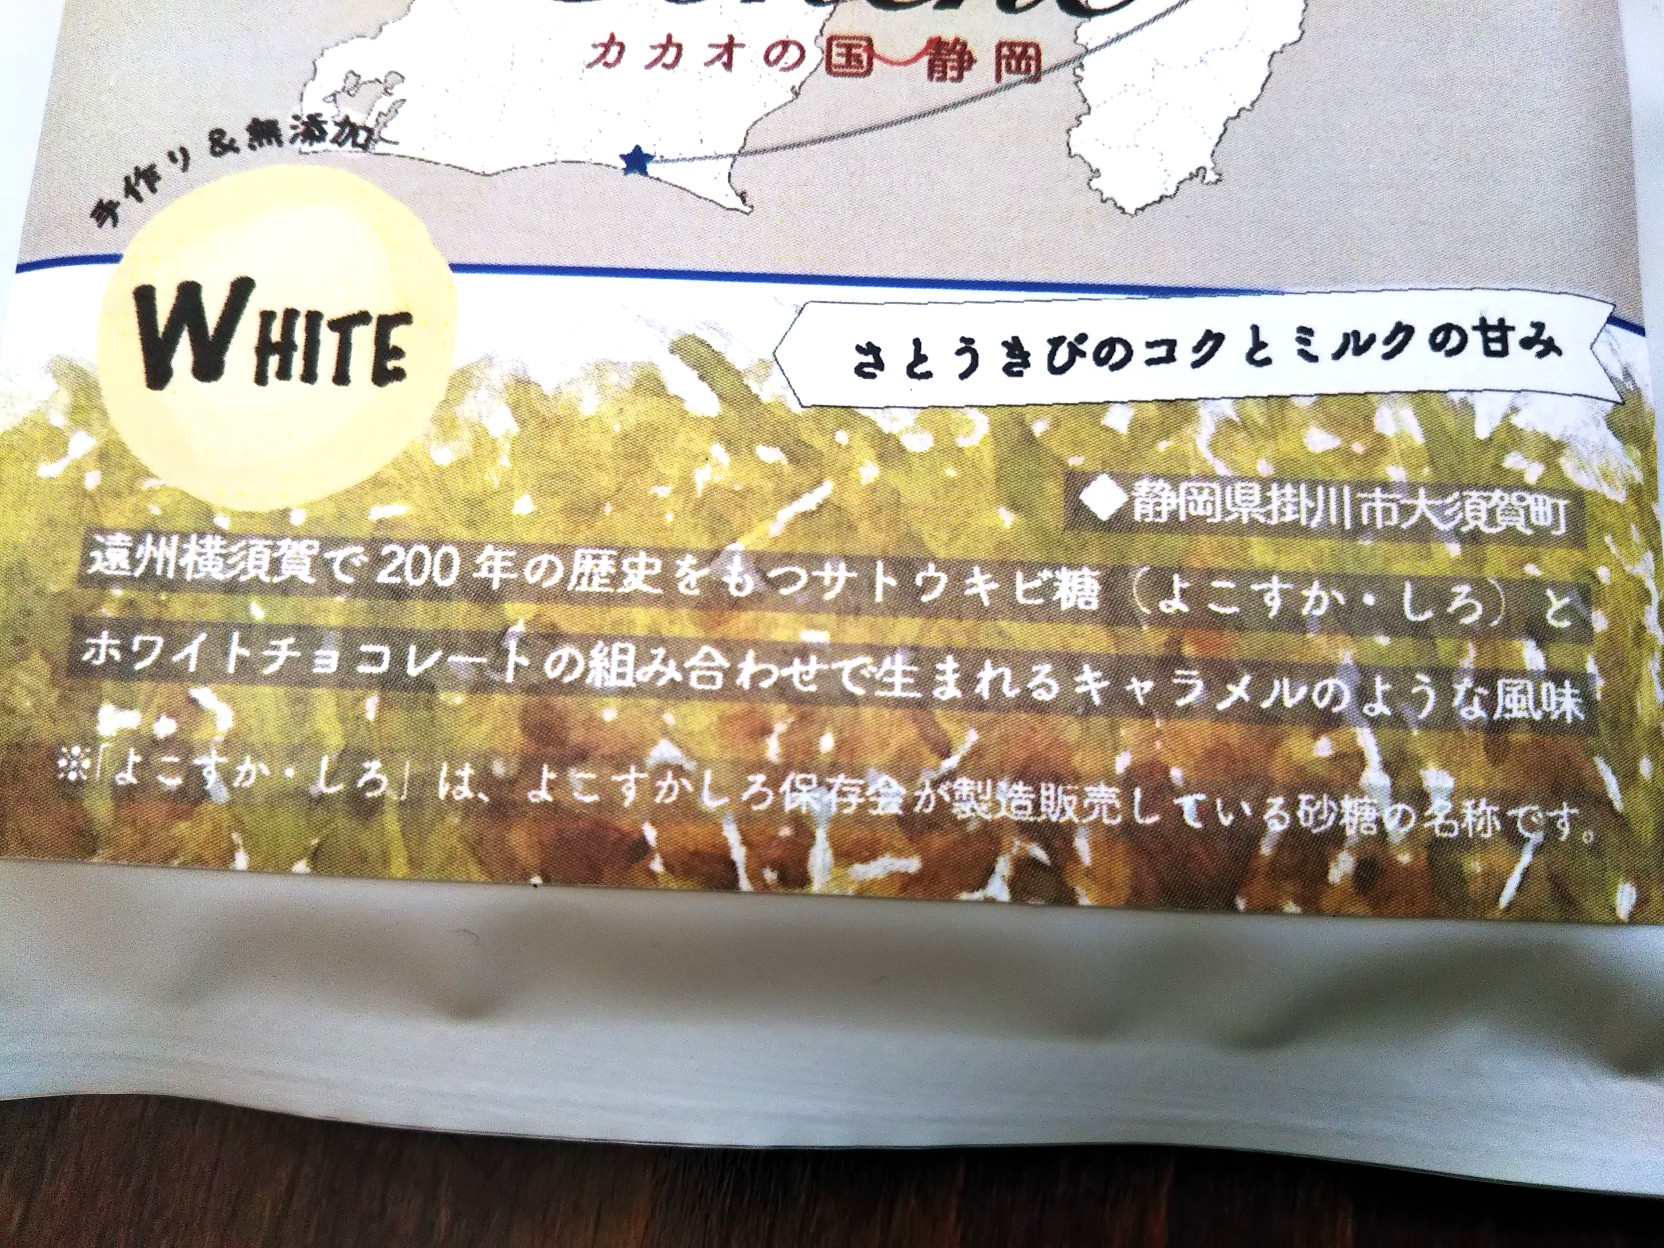 カカオの国 静岡
手作り&無添加
WHITE
さとうきびのコクとミルクの甘み
◆静岡県掛川市大須賀町
遠州横須賀で200年の歴史をもつサトウキビ糖(よこすか・しろ)と
ホワイトチョコレートの組み合わせで生まれるキャラメルのような風味
※「よこすか・しろ」は、よこすかしろ保存会が製造販売している砂糖の名称です。